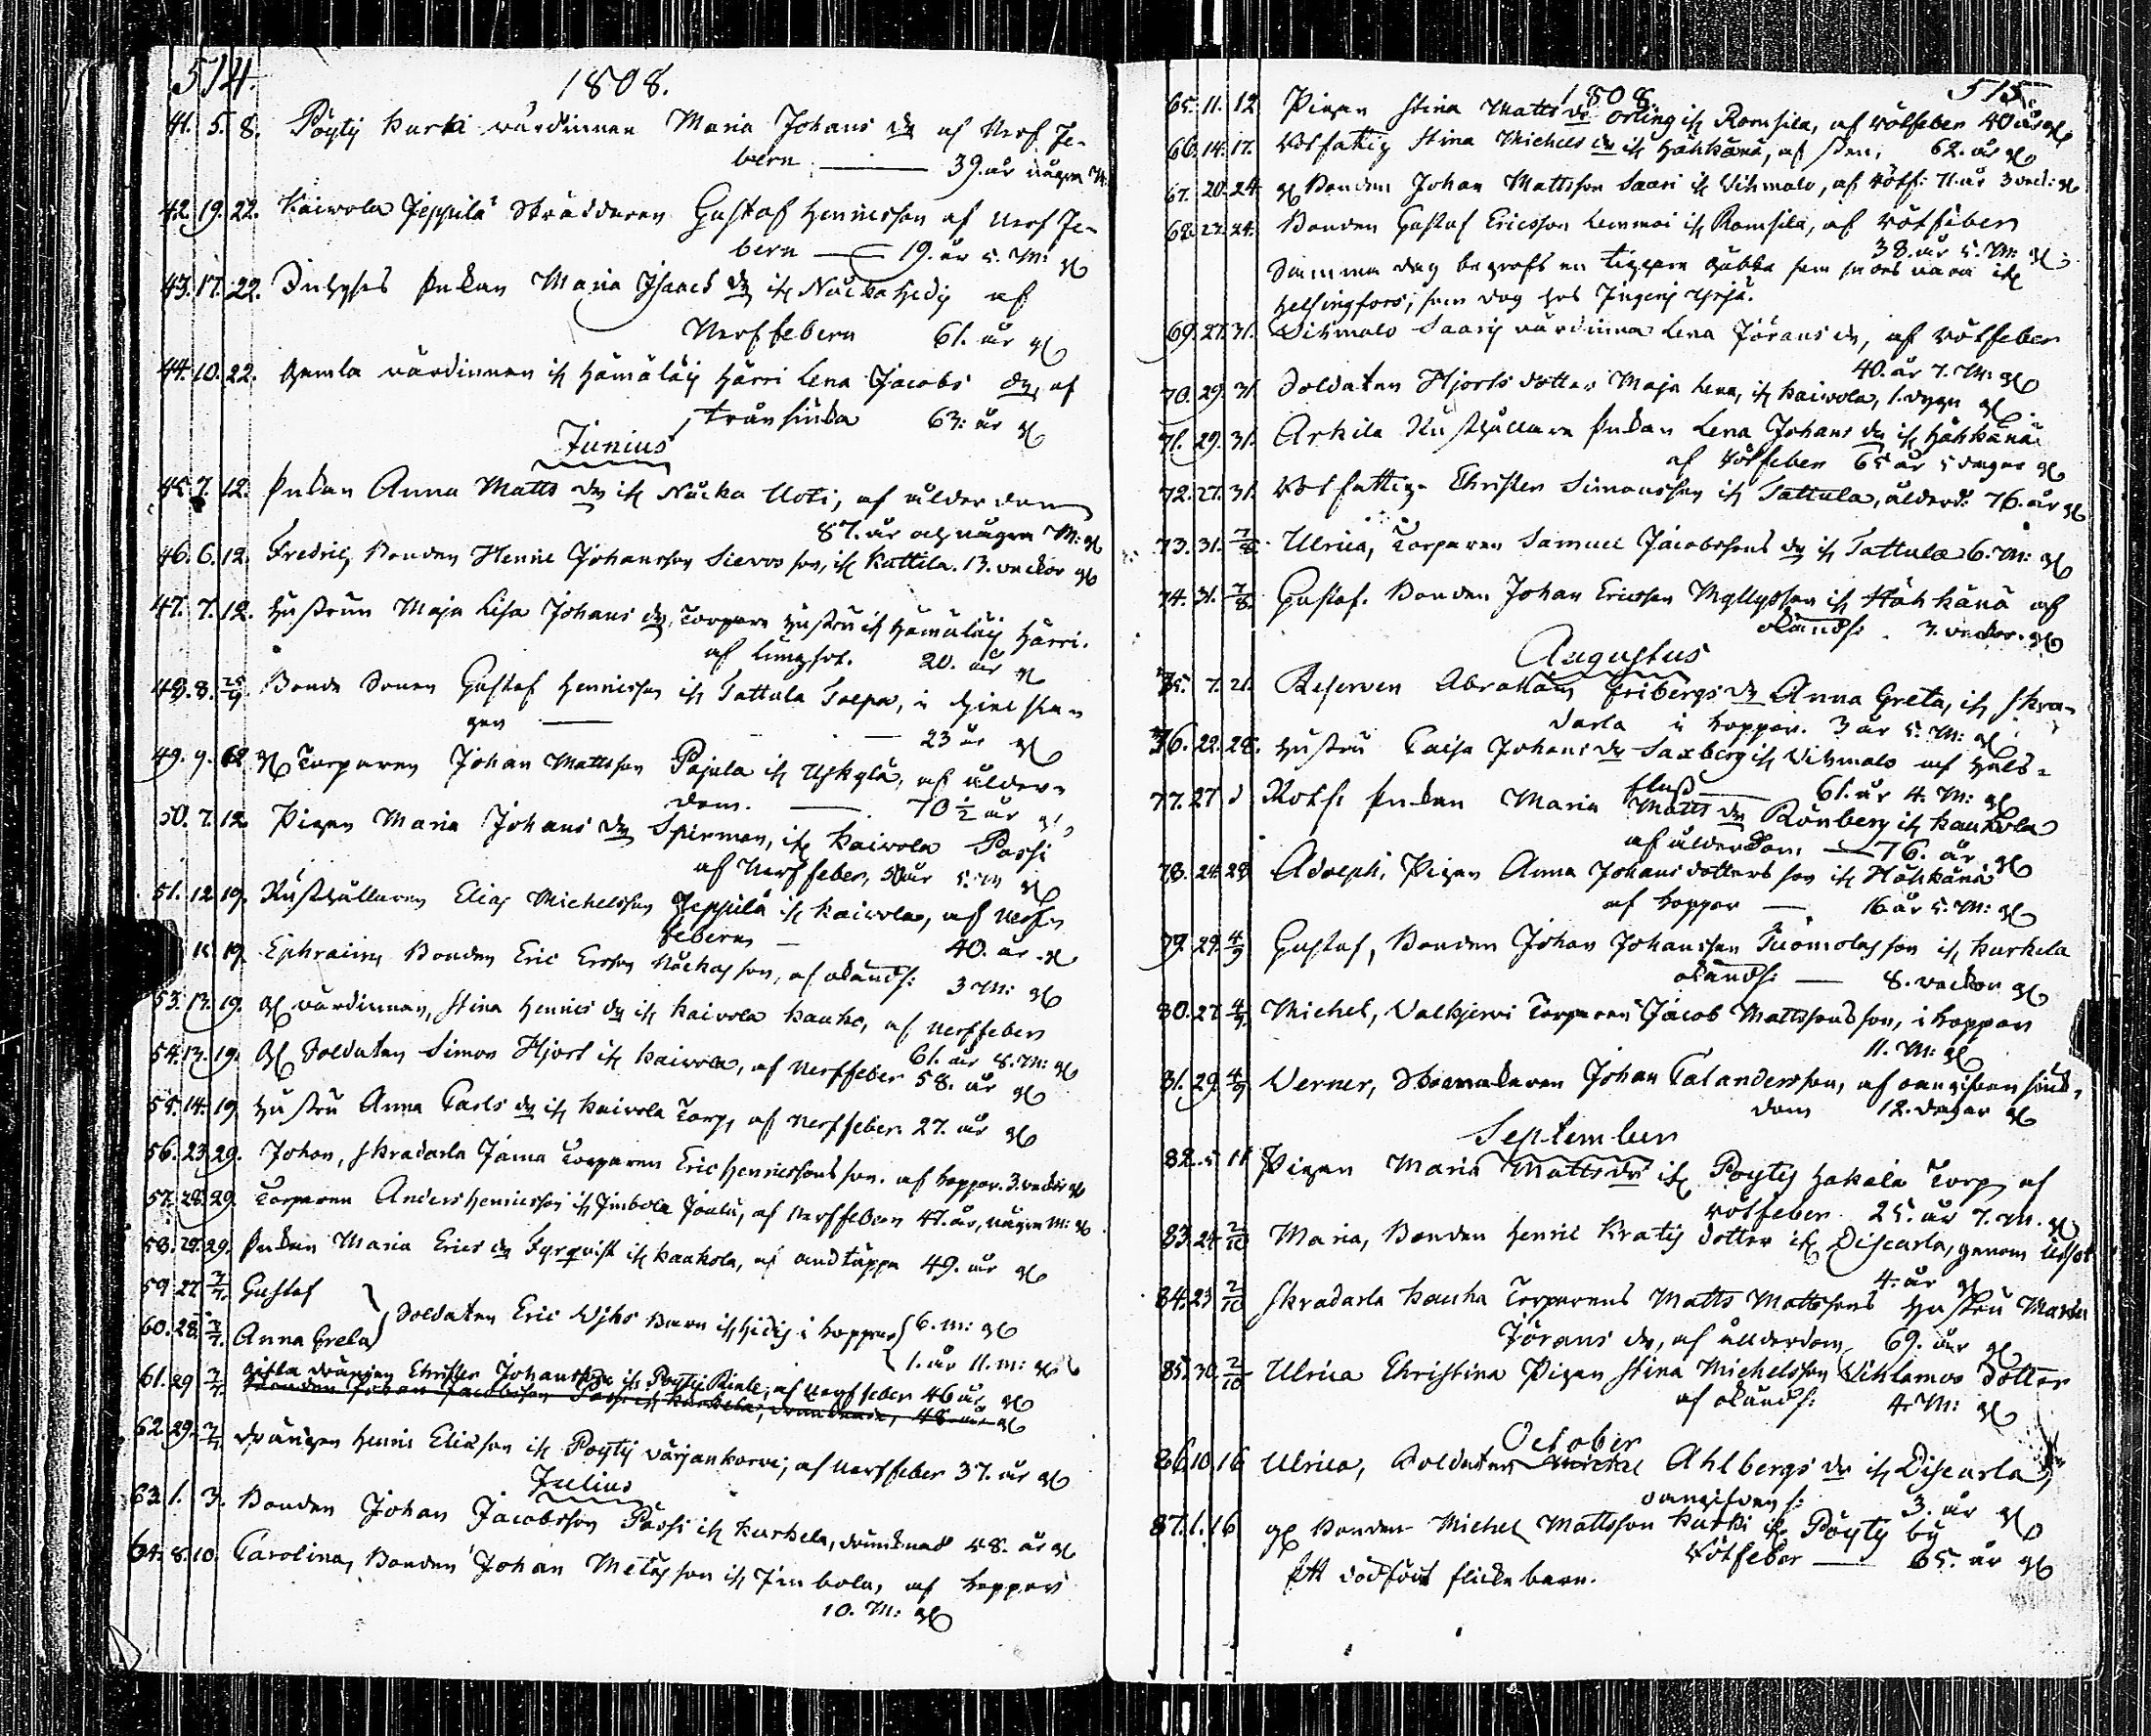 514.
1808.
41. 5. 8. Pöytij Kurki värdinnan Maria Johans dr af Nerf Fe-
bern — 39. år några M:
42. 19. 22. Kaivola Jeppilä Skräddaren Gustaf Henricsson af Nerf Fe-
bern — 19. år 5. M:
43. 17. 22. Enkan Maria Isaacs dr ifr Nuckahedig af
Nerffebern 61. år
44. 10. 22. Gamla värdinnan ifr Hämäläis Härri Lena Jacobs dr, af
trånsiuka 63. år
Junius
45. 7. 12. Enkan Anna Matts dr ifr Nucka Uoti, af ålderdom
87. år och några M:
46. 6. 12. Fredric, Bonden Henric Johansson Sievos son, ifr Kattila. 13. veckor
47. 7. 12. Hustrun Maja Lisa Johans dr, Torpare hustru ifr Hämäläis Härri.
af lungsot. 20. år
48. 8. 25/9 Bonde Sonen Gustaf Henricsson ifr Tattula
gen — 23 år
49. 9. 12 Torparen Johan Mattsson Pajula ifr Yskylä, af ålder-
dom. — 70 1/2 år
50. 7. 12. Pigan Maria Johans dr Spirman, ifr Kaivola Passi
af Nerffeber, år 5. M
51. 12. 19. Rusthållaren Elias Michelsson Jeppilä ifr Kaivola, af Nerf-
febern — 40. år
15. 19. Ephraim, Bonden Eric Ersson Nuckas son, af okänds: 3 M:
53. 13. 19. värdinnan, Stina Henrics dr ifr Kaivola Kauko, af Nerffeber
61. år 8. M:
54. 13. 19. Soldaten Simon Hjort ifr Kaivola, af Nerffeber 58. år
55. 14. 19. Hustru Anna Carls dr ifr Kaivola Torp, af Nerffeber 27. år
56. 23. 29. Johan, Skradarla Jäma Torparen Eric Henricssons son. af koppor. 3. veckor
57. 28. 29. Torparen Anders Henricsson ifr Jmbola Joulu, af Nerffebern 47. år, några M:
58. 29. 29. Enkan Maria Erics dr Fyrqvist ifr Kaukola, af andtäppa 49. år
59. 27. 3/7. Gustaf
60. 28. 3/7. Anna Greta } Soldaten Eric barn ifr hidij i koppor { 6. m:
1. år 11. m:
61. 29 3/7. gifta drängen Christer Johansson ifr Pöytij Riale, af Nerffeber 46 år
Bonden Johan Jacobsson Passi ifr Karkela, drunknade, 48. år
62. 29. 3/7. Drängen Henric Eliasson ifr Pöytij Värjankorvi, af Nerffeber 37. år
Julius
63. 1. 3. Bonden Johan Jacobsson Passi ifr Karkela, drunknad 48. år
64. 8. 10. Carolina, Bonden Johan Metäs son ifr Jmbola, af koppor
10. M:
1808
515.
65. 11. 12 Pigan Stina Matts dr Örling ifr Romsila, af rötfeber 40 år
66. 14. 17. Rotfattig Stina Michels dr ifr Hähkänä, af 62. år
67. 20. 24 Bonden Johan Mattsson Saari ifr Vihmalo, af rötf: 71. år 3 veck:
68. 22. 24. Bonden Gustaf Ericsson Lemmoi ifr Romsila, af rötfeber
38. år 5. M:
Samma dag begrofs en tiggare gubbe som sades vara ifr
Helsingfors; som dog hos
69. 27. 31. Vihmalo Saaris värdinna Lena Jörans dr, af rötfeber
40. år 7. M:
70. 29. 31. Soldaten Hjorts dotter Maja Lena, ifr Kaivola, 1. dygn
71. 29. 31. Arkila Rusthållare Enkan Lena Johans dr ifr Hähkänä
af rötfeber 65 år 5 dagar
72. 27. 31. Rotfattige Christer Simonsson ifr Tattula, ålderd: 76. år
73. 31. 7/8. Ulrica, Torparen Samuel Jacobssons dr ifr Tattula 6. M:
74. 31. 7/8. Gustaf. Bonden Johan Ericsson Myllys son ifr Hähkänä af
okänds: 3. veckor.
Augustus
75. 7. 21. Reserven Abraham Fribergs dr Anna Greta, ifr Skra-
darla i koppor. 3 år 5. M:
76. 22. 28. Hustru Caisa Johans dr Saxberg ifr Vihmalo af hals-
fluss — 61. år 4. M:
77. 27 d Rotf: Enkan Maria Matts dr Rönberg ifr Kaukola
af ålderdom — 76. år
78. 24. 28 Adolph, Pigan Anna Johans dotters son ifr Hähkänä
af koppor — 16 år 5. M:
79. 29. 4/9 Gustaf, Bonden Johan Johansson Tuomolas son ifr Karkela
okänds: — 8. veckor
80. 27. 4/9. Michel, Valkjervi Torparen Jacob Mattssons son, i koppor
11. M:
81. 29. 4/9. Verner, Skomakaren Johan Calanders son, af oangifven siuk-
dom 12. dagar
September
82. 5. 11 Pigan Maria Matts dr ifr Pöytij Hakala Torp, af
rötfeber. 25. år 7. M.
83. 24. 2/10 Maria, Bonden Henric Kratis dotter ifr Discarla, genom
4. år
84. 23 2/10 Skradarla Kauha Torparens Matts Mattssons hustru Maria
Jörans dr, af ålderdom 69. år
85. 30. 2/10 Ulrica Christina Pigan Stina Michelsson Vihlamos dotter
af okänds: 4. M:
October
86. 10. 16 Ulrica, Soldaten Ahlbergs dr ifr Discarla,
oangifven s: 3. år
87. 1. 16 Bonden Michel Mattsson Kurki ifr Pöyty by
Rötfeber — 65. år
Ett dödfödt flicke barn.